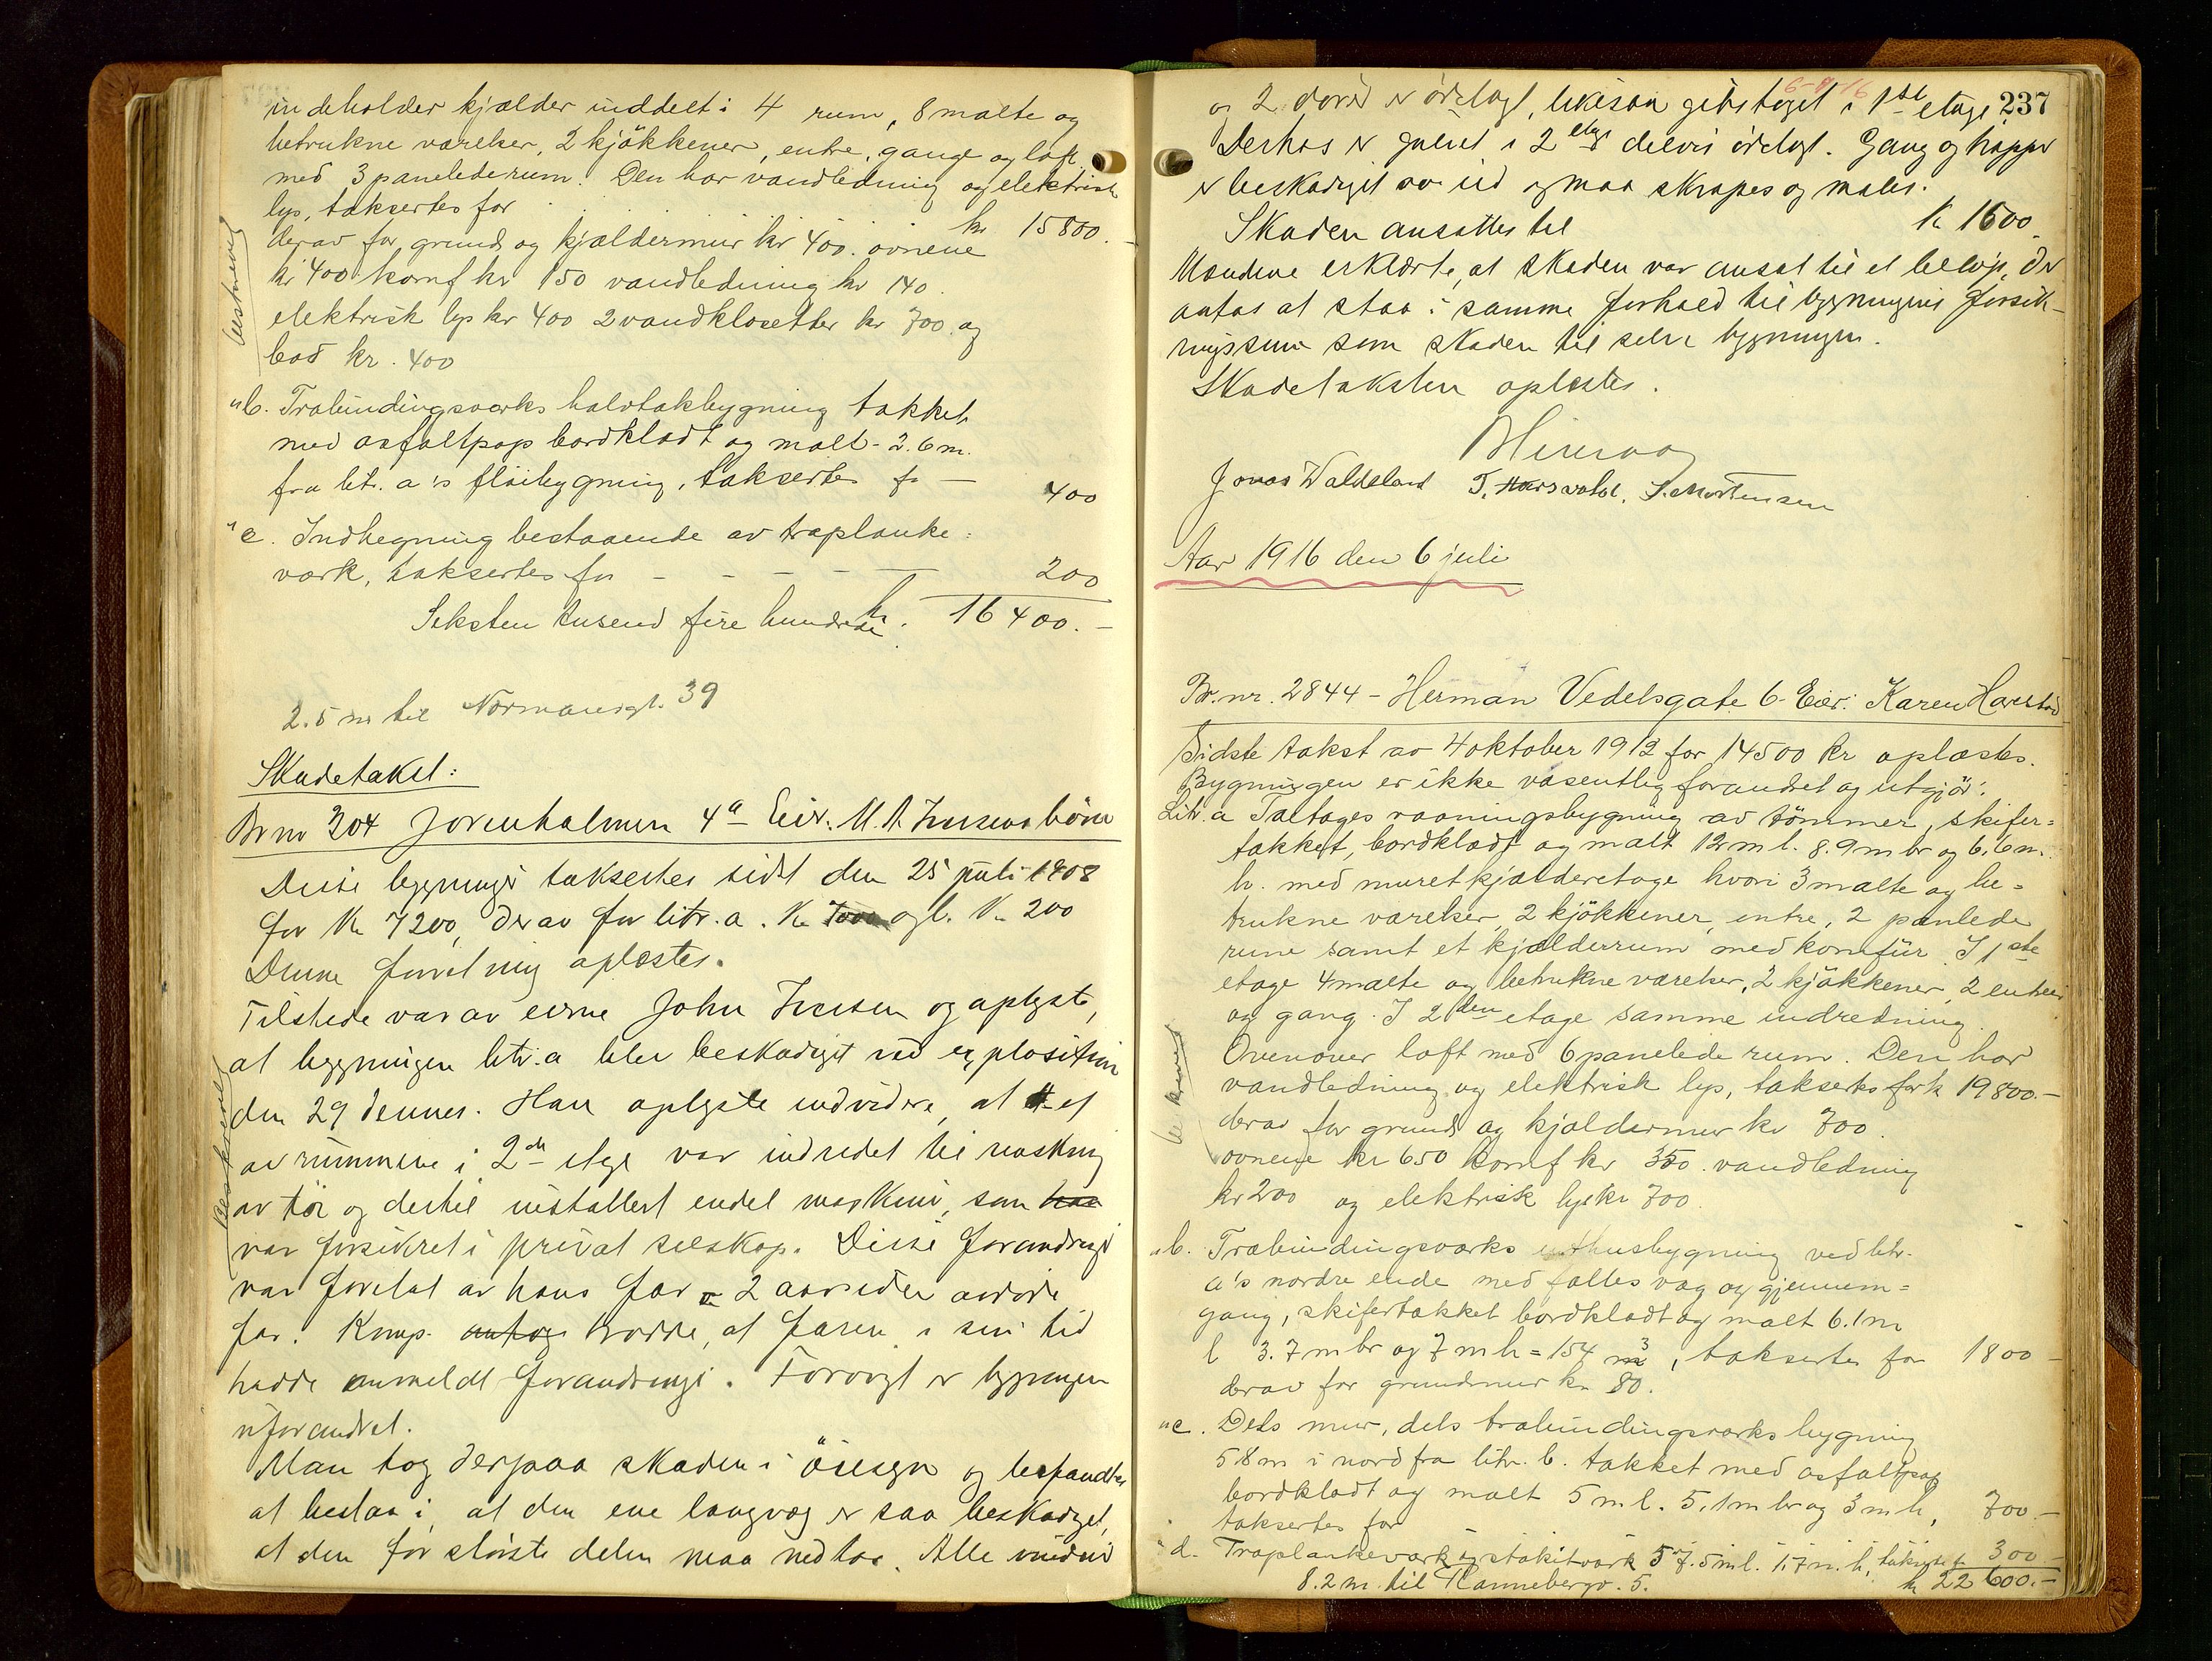 indeholder kjælder inddelt i 4 rum, 8 malte og
betrukne værelser, 2 kjökkener, entre, gange og loft
med 3 panelede rum. Den har vandledning og elektrisk
lys, taksertes for kr 15800.-
derav for grund og kjældermur kr 400. ovnene
kr 400 komf kr 150 vandledning kr 140.
elektrisk lys kr 400 2 vandklosetter kr 700 og
bad kr. 400
"b. Træbindingsværks halvtakbygning tækket
med asfaltpap bordklædt og malt - 2.6 m.
fra litr. a's flöibygning, taksertes fr — 400
"c. Indhegning bestaaende av træplanke=
værk, taksertes for - - - - — 200
Seksten tusend fire hundrede kr. 16400.-
2.5 m til Normansgt. 39
Skadetakst:
Br nr 304 Jorenholmen 4a Eier: M. A.
Disse bygninger taksertes sidst den 25 juli 1908
for Kr 7200, derav for litr. a. Kr 7000 og b. Kr 200
Denne forretning oplæstes.
Tilstede var av eierne John og oplyste,
at bygningen litr. a blev beskadiget ved explosion
den 29 dennes. Han oplyste endvidere, at et
av rummene i 2den etage var indredet til
av töi og dertil installert endel maskiner, som har
var forsikret i privat selskap. Disse forandringer
var foretat av hans far 2 aar siden
far. Komp. antog trodde, at faren i sin tid
hadde anmeldt forandringen. Forövrigt er bygningen
uforandret.
Man tog derpaa skaden i öiesyn og befandtes
at bestaa i, at den ene langvæg er saa beskadiget,
at den for störste delen maa nedtas. Alle vinduer
beskrivning
6-9/16
237
og 2 dörer er ödelagt, likesaa gibstaget i 1ste etage.
Derhos er gulvet i 2 etage delvis ödelagt. Gang og trapper
er beskadiget av ild og maa skrapes og males.
Skaden ansattes til K 1600.
Mændene erklærte, at skaden var ansat til et belöp, der
antas at staa i samme forhold til bygningens forsik-
ringssum som skaden til selve bygningen.
Skadetaksten oplæstes.
Jonas Waldeland T. S. Mortensen
Aar 1916 den 6 juli
Br. nr. 2844 - Herman Vedelsgate 6. Eier: Karen Harestad
Sidste takst av 4 oktober 1912 for 14500 kr oplæstes.
Bygningen er ikke væsentlig forandret og utgjör:
Litr. a Toetages vaaningsbygning av tömmer, skifer=
tækket, bordklædt og malt 12 m l. 8.9 m br og 6.6 m.
h. med muret kjælderetage hvori 3 malte og be=
trukne værelser, 2 kjökkener, entre, 2 panlede
rum samt et kjælderrum med komfür. I 1ste
etage 4 malte og betrukne værelser, 2 kjökkener, 2 entreer
og gang. I 2den etage samme indredning.
Ovenover loft med 6 panelede rum. Den har
vandledning og elektrisk lys, taksertes for k 19800.-
derav for grund og kjældermur kr 700.
ovnene kr 650 komf kr 350. vandledning
kr 200 og elektrisk lys kr 700.
"b. Træbindingsværks uthusbygning ved litr.
a's nordre ende med fælles væg og gjennem=
gang, skifertækket bordklædt og malt 6.1 m
l 3.7 m br og 7 m h = 154 m3, taksertes for 1800 -
derav for grundmur kr 80.
"c. Dels mur, dels træbindingsværks bygning
5.8 m i nord fra litr. b. tækket med asfaltpap
bordklædt og malt 5 m l. 5.1 m br og 3 m h, 700.-
taksertes for
"d. Træplankeværk og stakitværk 57.5 m l. 1.7 m. h, taksertes fr 300.-
8.2 m til Rannebergv. 5. kr 22600.-